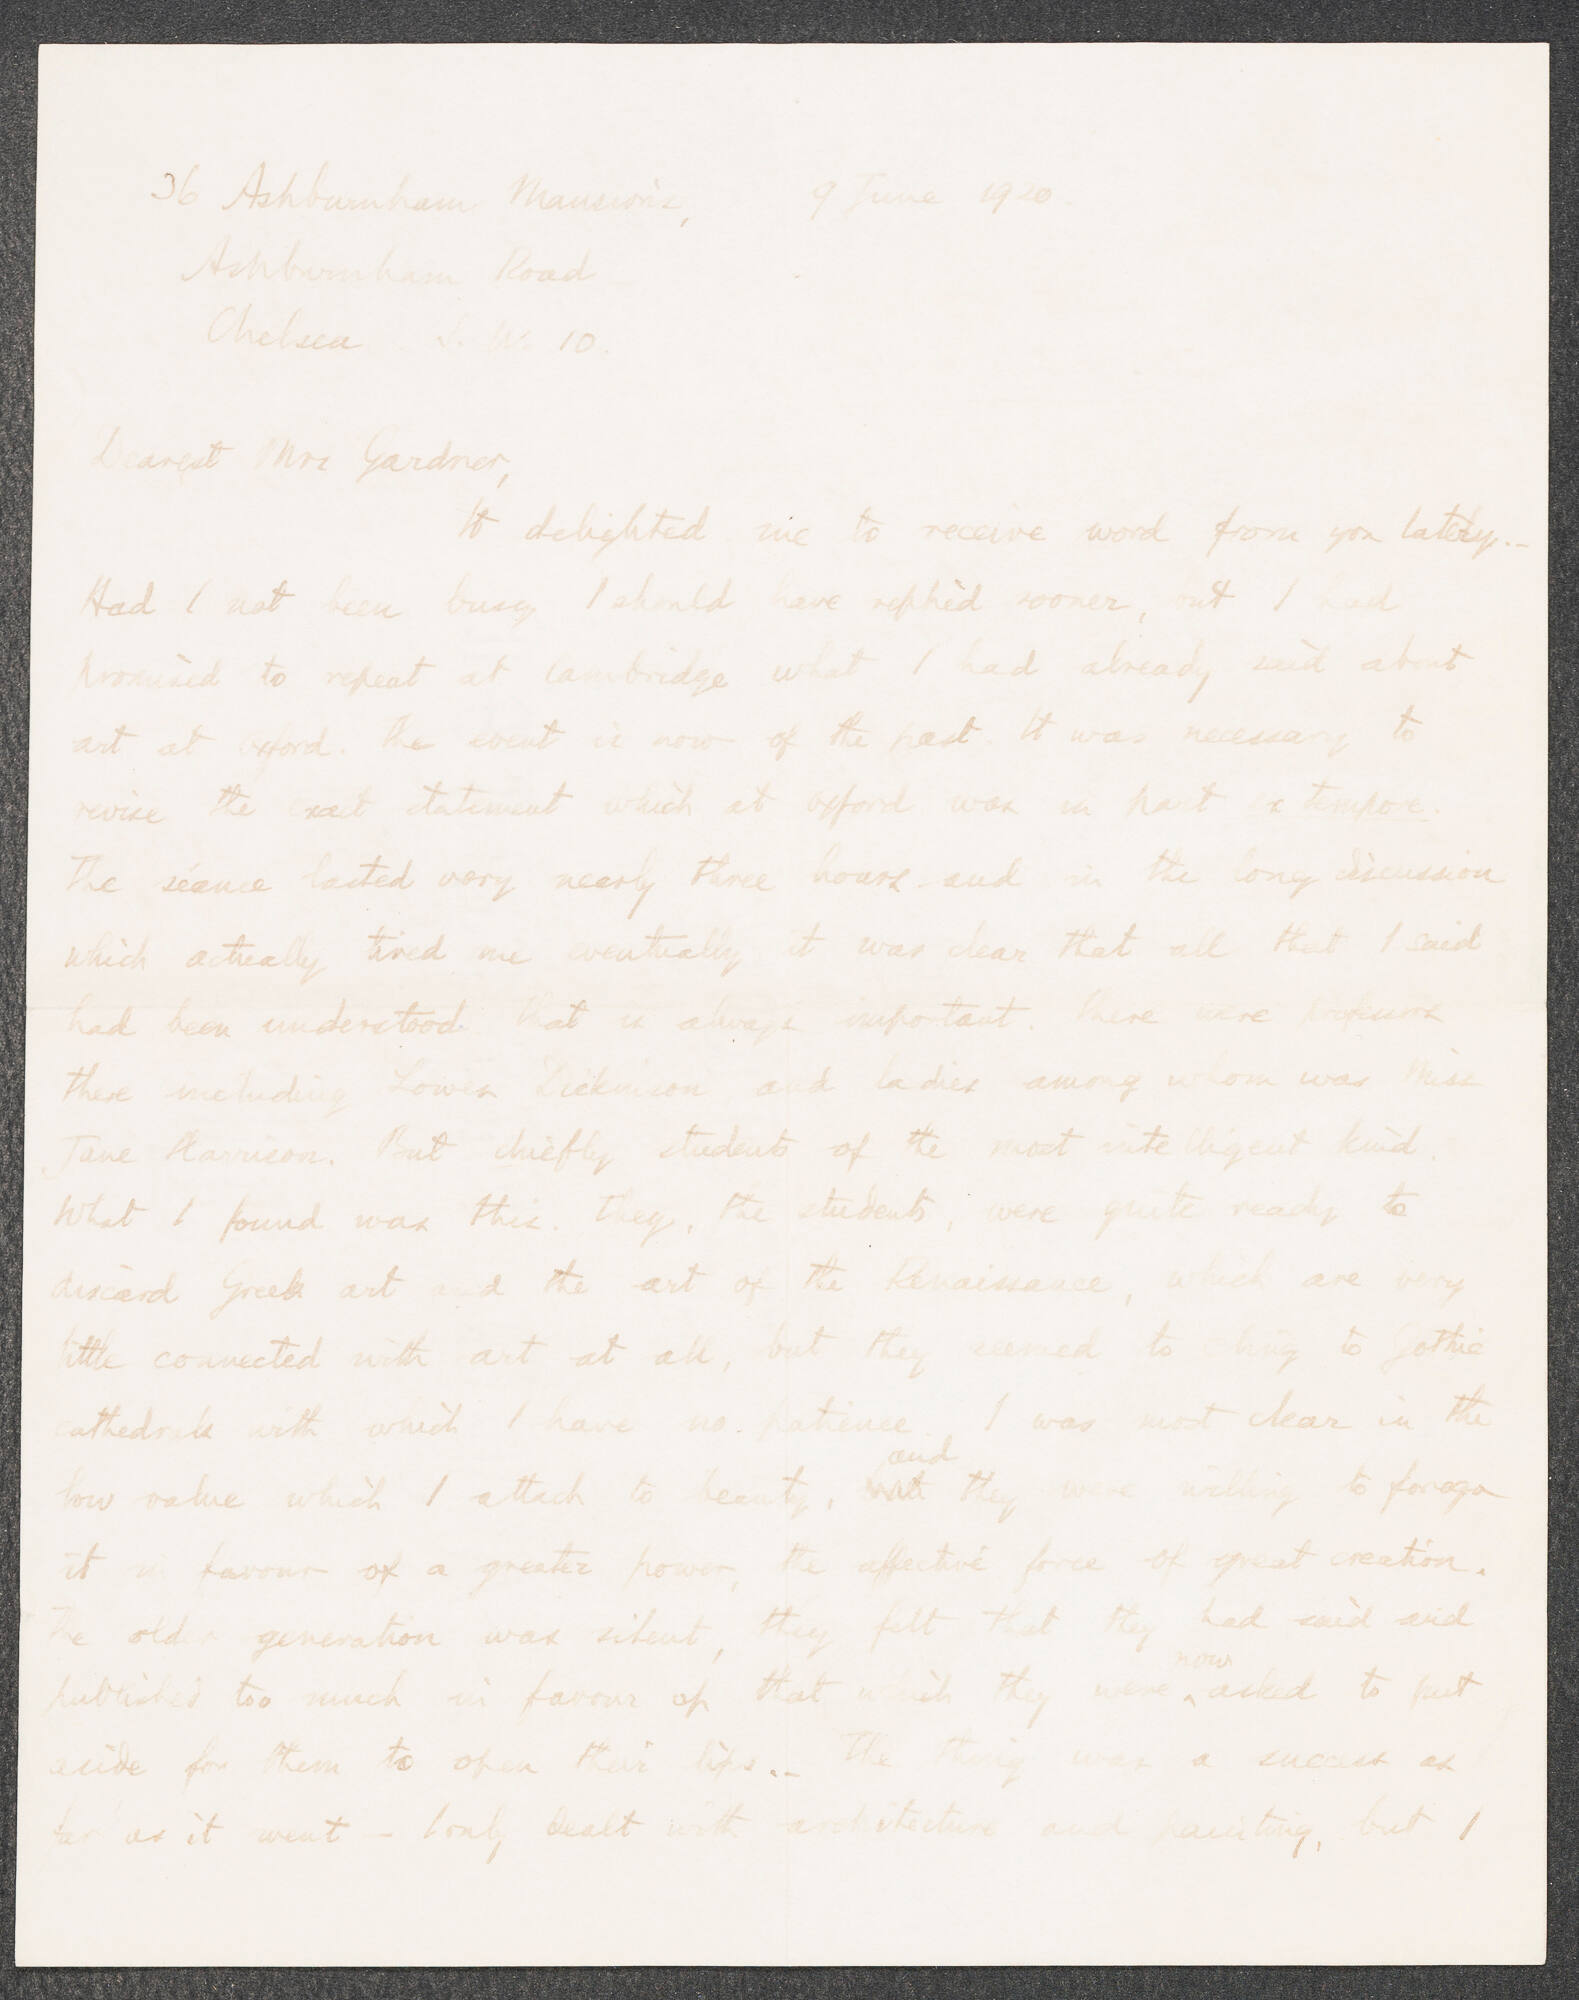 36 Ashburnham Mansions, 9 June 1920.
Ashburnham Road
Chelsea S. W. 10.
Dearest Mrs Gardner,
It delighted me to receive word from you lately..
Had I not been busy I should have replied sooner, but I had
promised to repeat at Cambridge what I had already said about
art at Oxford. The event is now of the past. It was necessary to
revise the exact statement which at Oxford was in part ex tempore.
The séance lasted very nearly three hours and in the long discussion
which actually tired me eventually it was clear that all that I said
had been understood. That is always important. There were professors
there including Lowes Dickinson and ladies among whom was Miss
Jane Harrison. But chiefly students of the most intelligent kind.
What I found was this. They, the students, were quite ready to
discard Greek art and the art of the Renaissance, which are very
little connected with art at all, but they seemed to cling to Gothic
cathedrals with which I have no patience. I was most clear in the
low value which I attach to beauty, but and they were willing to forego
it in favour of a greater power, the affective force of great creation.
The older generation was silent, they felt that they had said and
published too much in favour of that which they were now asked to put
aside for them to open their lips.. The thing was a success as
far as it went – I only dealt with architecture and painting, but I